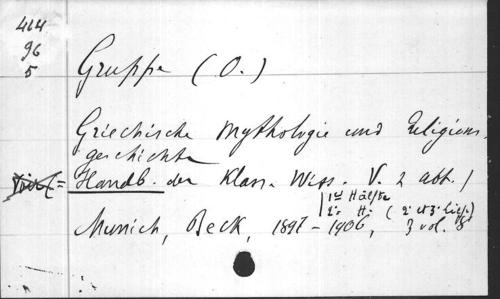 464
96
5
Gruppe (O.)
Griechische Mythologie und Religions
geschichte
= Handb. der Klass. Wiss. V. 2 abt.
1re Hälfte
2e H. (2e et 3e
Munich, Beck, 1897-1906, 3 vol. 8°